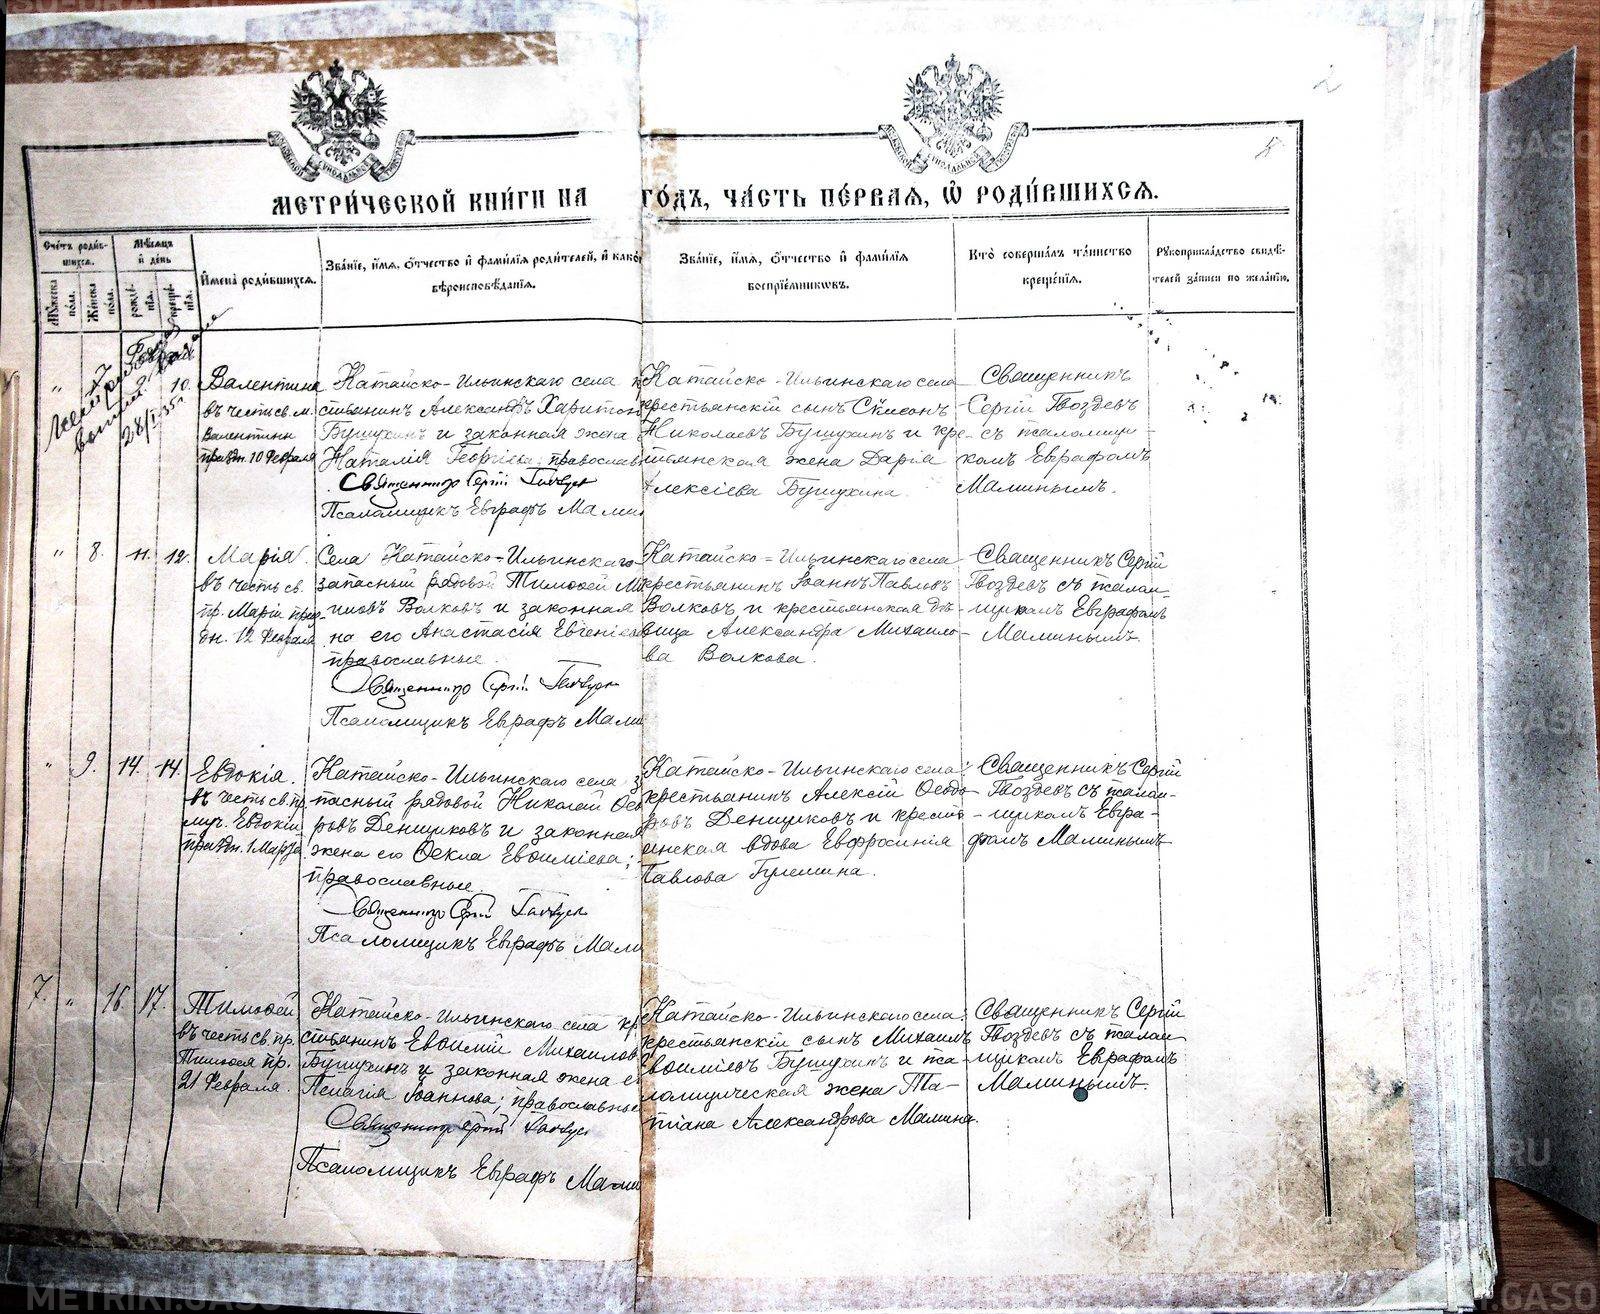 МЕТРИ́ЧЕСКОЙ КНИ́ГИ НА ГО́ДЪ, ЧА́СТЬ ПЕ́РВАЯ, Ѡ҆ РОДИ́ВШИХСЯ.
Сче́тъ роди́в-
шихся.
Мꙋ́жеска по́ла.
Же́нска по́ла.
Мѣ́сяцъ
и҆ де́нь
рожде́-
нїя.
креще́-
нїя.
И҆мена̀ роди́вшихся.
Зва́нїе, и҆́мя, о҆́тчество и҆ фами́лїя роди́телей, и҆ како́
вѣроисповѣ́данїя.
Зва́нїе, и҆́мя, о҆́тчество и҆ фами́лїя
воспрїе́мниковъ.
Кто̀ соверша́лъ та́инство
креще́нїя.
Рꙋкоприкла́дство свидѣ́-
телей за́писи по жела́нїю.
" 7 10.
28/I-35г.
Валентина
въ честь св. м.
Валентины
праздн. 10 Февраля
Катайско-Ильинскаго села к
стьянинъ Александръ Харитон
Бушухинъ и законная жена
Наталія Георгіева; православ
Священникъ Сергій Гвоздевъ
Псаломщикъ Евграфъ Мали
Катайско-Ильинскаго села
крестьянскій сынъ Симеонъ
Николаевъ Бушухинъ и кре-
стьянская жена Дарія
Алексіева Бушухина.
Священникъ
Сергій Гвоздевъ
съ псаломщи-
комъ Евграфомъ
Малинымъ.
" 8. 11. 12.
Марія.
въ честь св.
пр. Маріи праз-
дн. 12 Февраля
Села Катайско-Ильинскаго
запасный рядовой Тимофей Ми
Волковъ и законная
на его Анастасія Евгеніева
православные.
Священникъ Сергій Гвоздевъ
Псаломщикъ Евграфъ Мали
Катайско-Ильинскаго села
крестьянинъ Іоаннъ Павловъ
Волковъ и крестьянская дѣ-
вица Александра Михаило-
ва Волкова.
Священникъ Сергій
Гвоздевъ съ псалом-
щикомъ Евграфомъ
Малинымъ.
" 9. 14. 14.
Евдокія.
въ честь св. пр.
муч. Евдокіи
праздн. 1 Марта
Катайско-Ильинскаго села з
пасный рядовой Николай Ѳео
ровъ Денщиковъ и законная
жена его Ѳекла Евѳиміева;
православные.
Священникъ Сергій Гвоздевъ
Псаломщикъ Евграфъ Мали
Катайско-Ильинскаго села
крестьянинъ Алексій Ѳеодо-
ровъ Денщиковъ и крестья-
нская вдова Евфросинія
Павлова
Священникъ Сергій
Гвоздевъ съ псалом-
щикомъ Евгра-
фомъ Малинымъ
7. " 16. 17.
Тимоѳей
въ честь св. пр.
Тимоѳея пр.
21 Февраля.
Катайско-Ильинскаго села кр
стьянинъ Евѳимій Михаилов
Бушухинъ и законная жена е
Пелагія Іоаннова; православные
Священникъ Сергій Гвоздевъ
Псаломщикъ Евграфъ Мали
Катайско-Ильинскаго села
крестьянскій сынъ Михаилъ
Евѳиміевъ Бушухинъ и пса-
ломщическая жена Та-
тіана Александрова Малина.
Священникъ Сергій
Гвоздевъ съ псалом-
щикомъ Евграфомъ
Малинымъ.
METRIKI.GASO